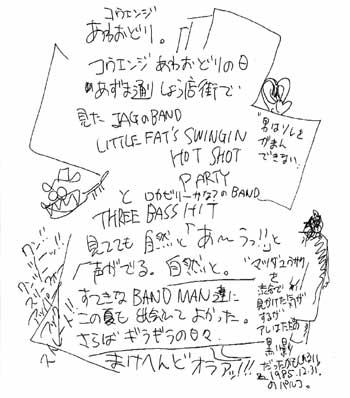 コウエンジ
あわおどり。
コウエンジ あわおどりの日
のあずま通りしょう店街で、
見た JAGのBAND
LITTLE FAT'S SWINGIN
HOT SHOT
PARTY
と ロカビリーかなつのBAND
THREE BASS HIT
見てても 自然と「あ〜うっ!!」と
声がでる。自然にと。
すてきな BAND MAN 達に
この夏も 出会えて よかった。
さらば ギラギラの日々
まけへんどオラァッ!!!
"男はソレを
がまん
できない
"マツダユウサク
を
渋谷で
見かけた
するが
アレはただの
黒い影
1985.12.31.
のパルコ。